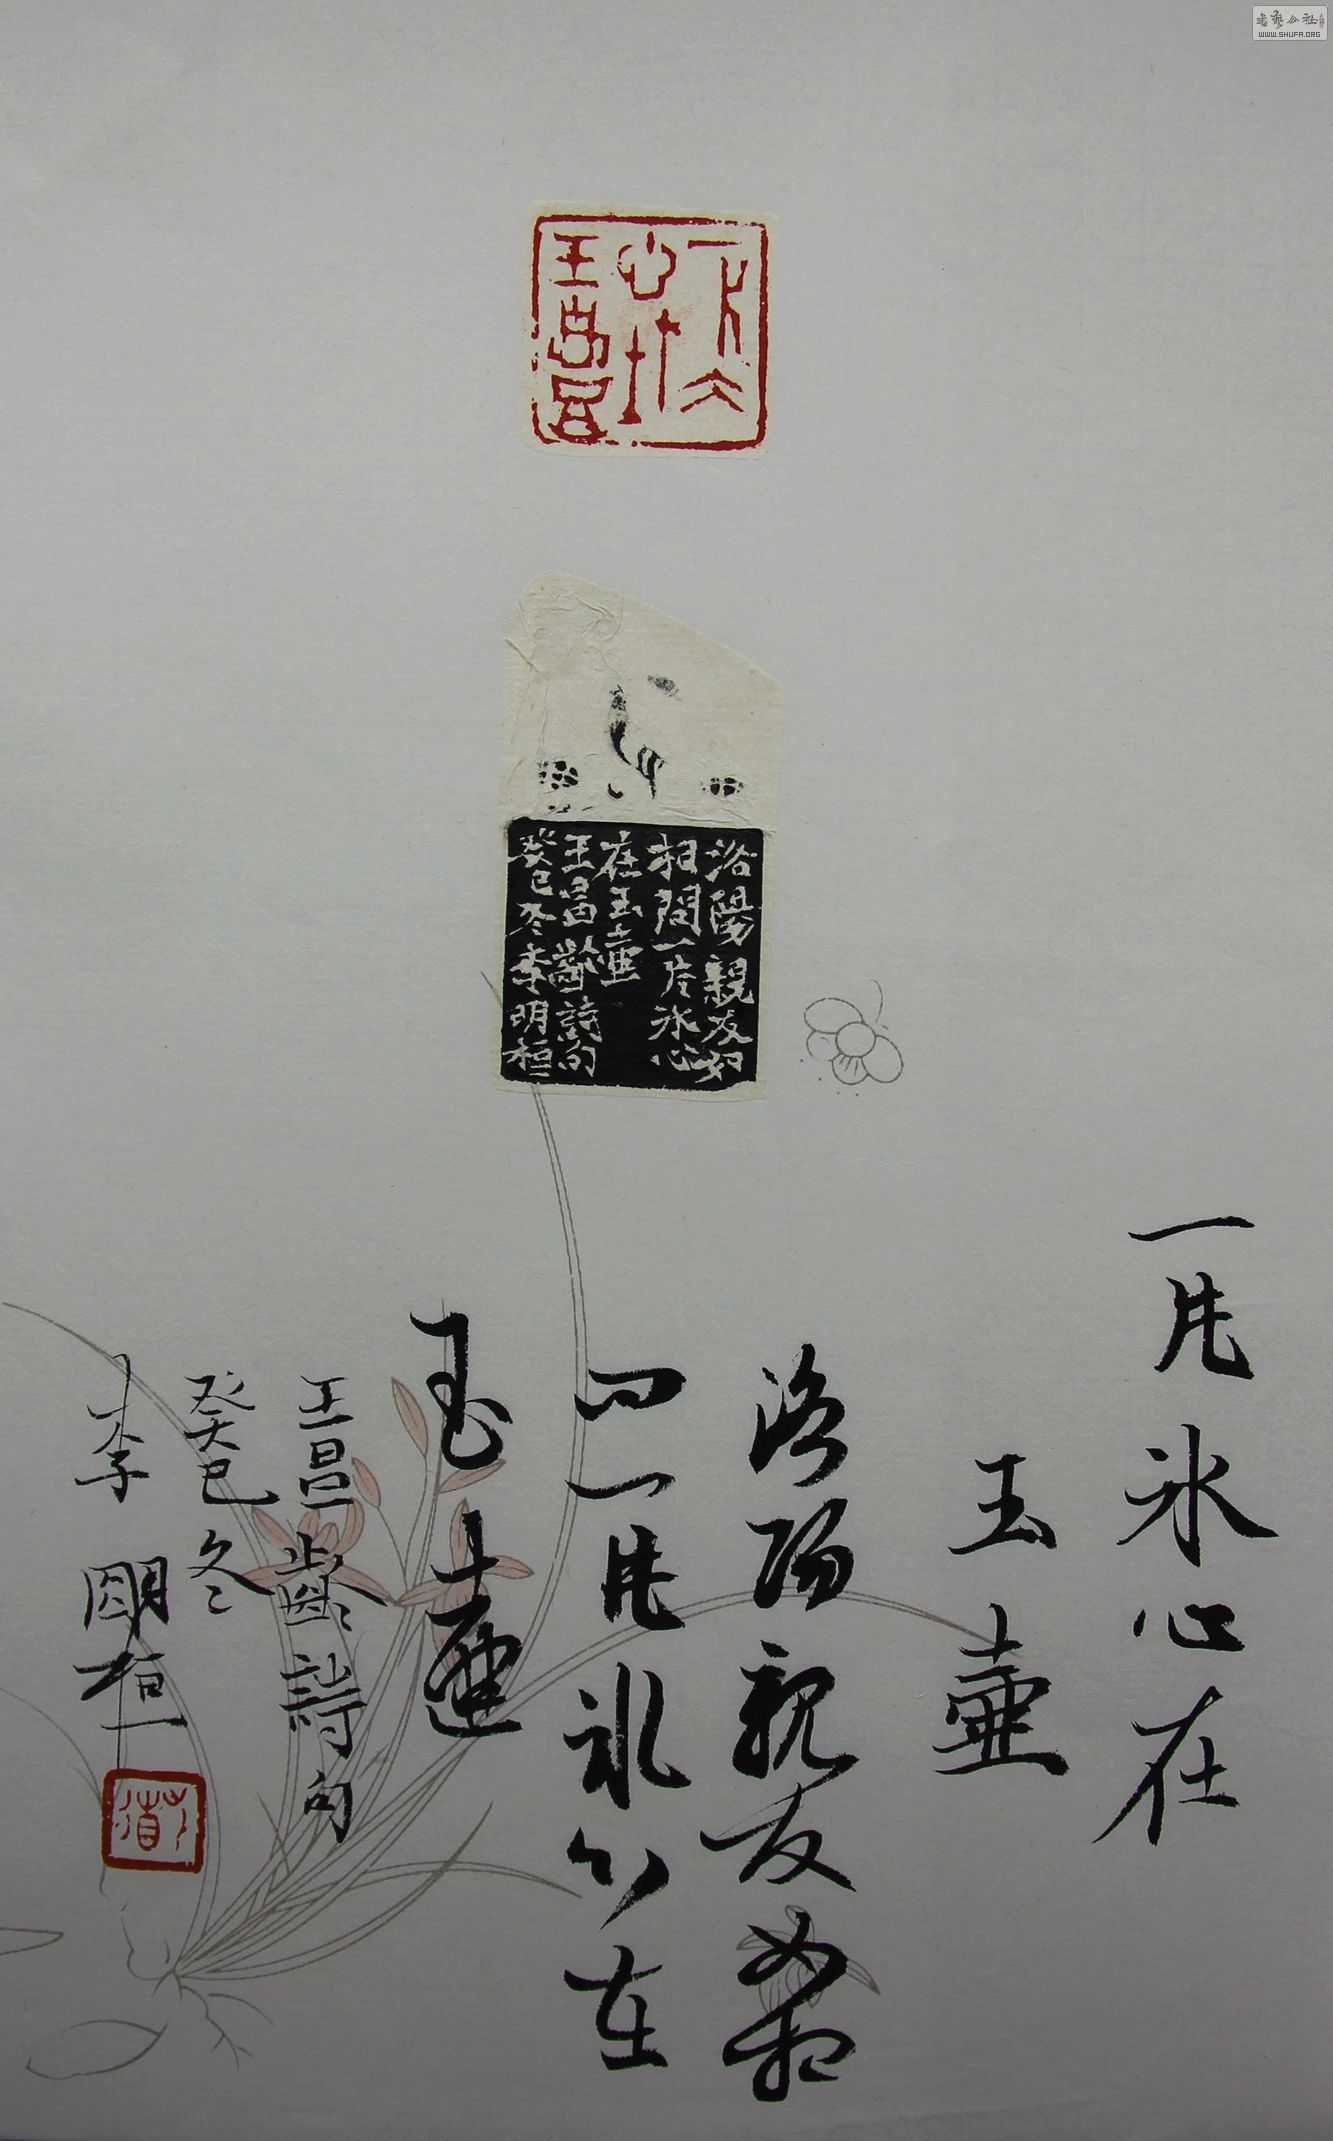 書藝公社
WWW.SHUFA.ORG
一片冰
心在
玉壺
洛陽親友如
相問一片冰心
在玉壺
王昌齡詩句
癸巳冬李明桓
一片冰心在
玉壺
洛陽親友如相
问一片冰心在
玉壺
王昌齡詩句
癸巳冬
李明桓